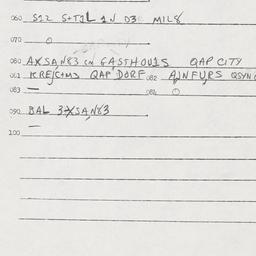 060 S22 S+TJL 1N D3 MIL8
070 O
080 AXSAN83 CN GASTHOUIS QAP CITY
081 KREJCAM3 QAP DORF 082 AJNFURS QSYN
083 —
084 O
090 BAL 3XSAN83
—
100